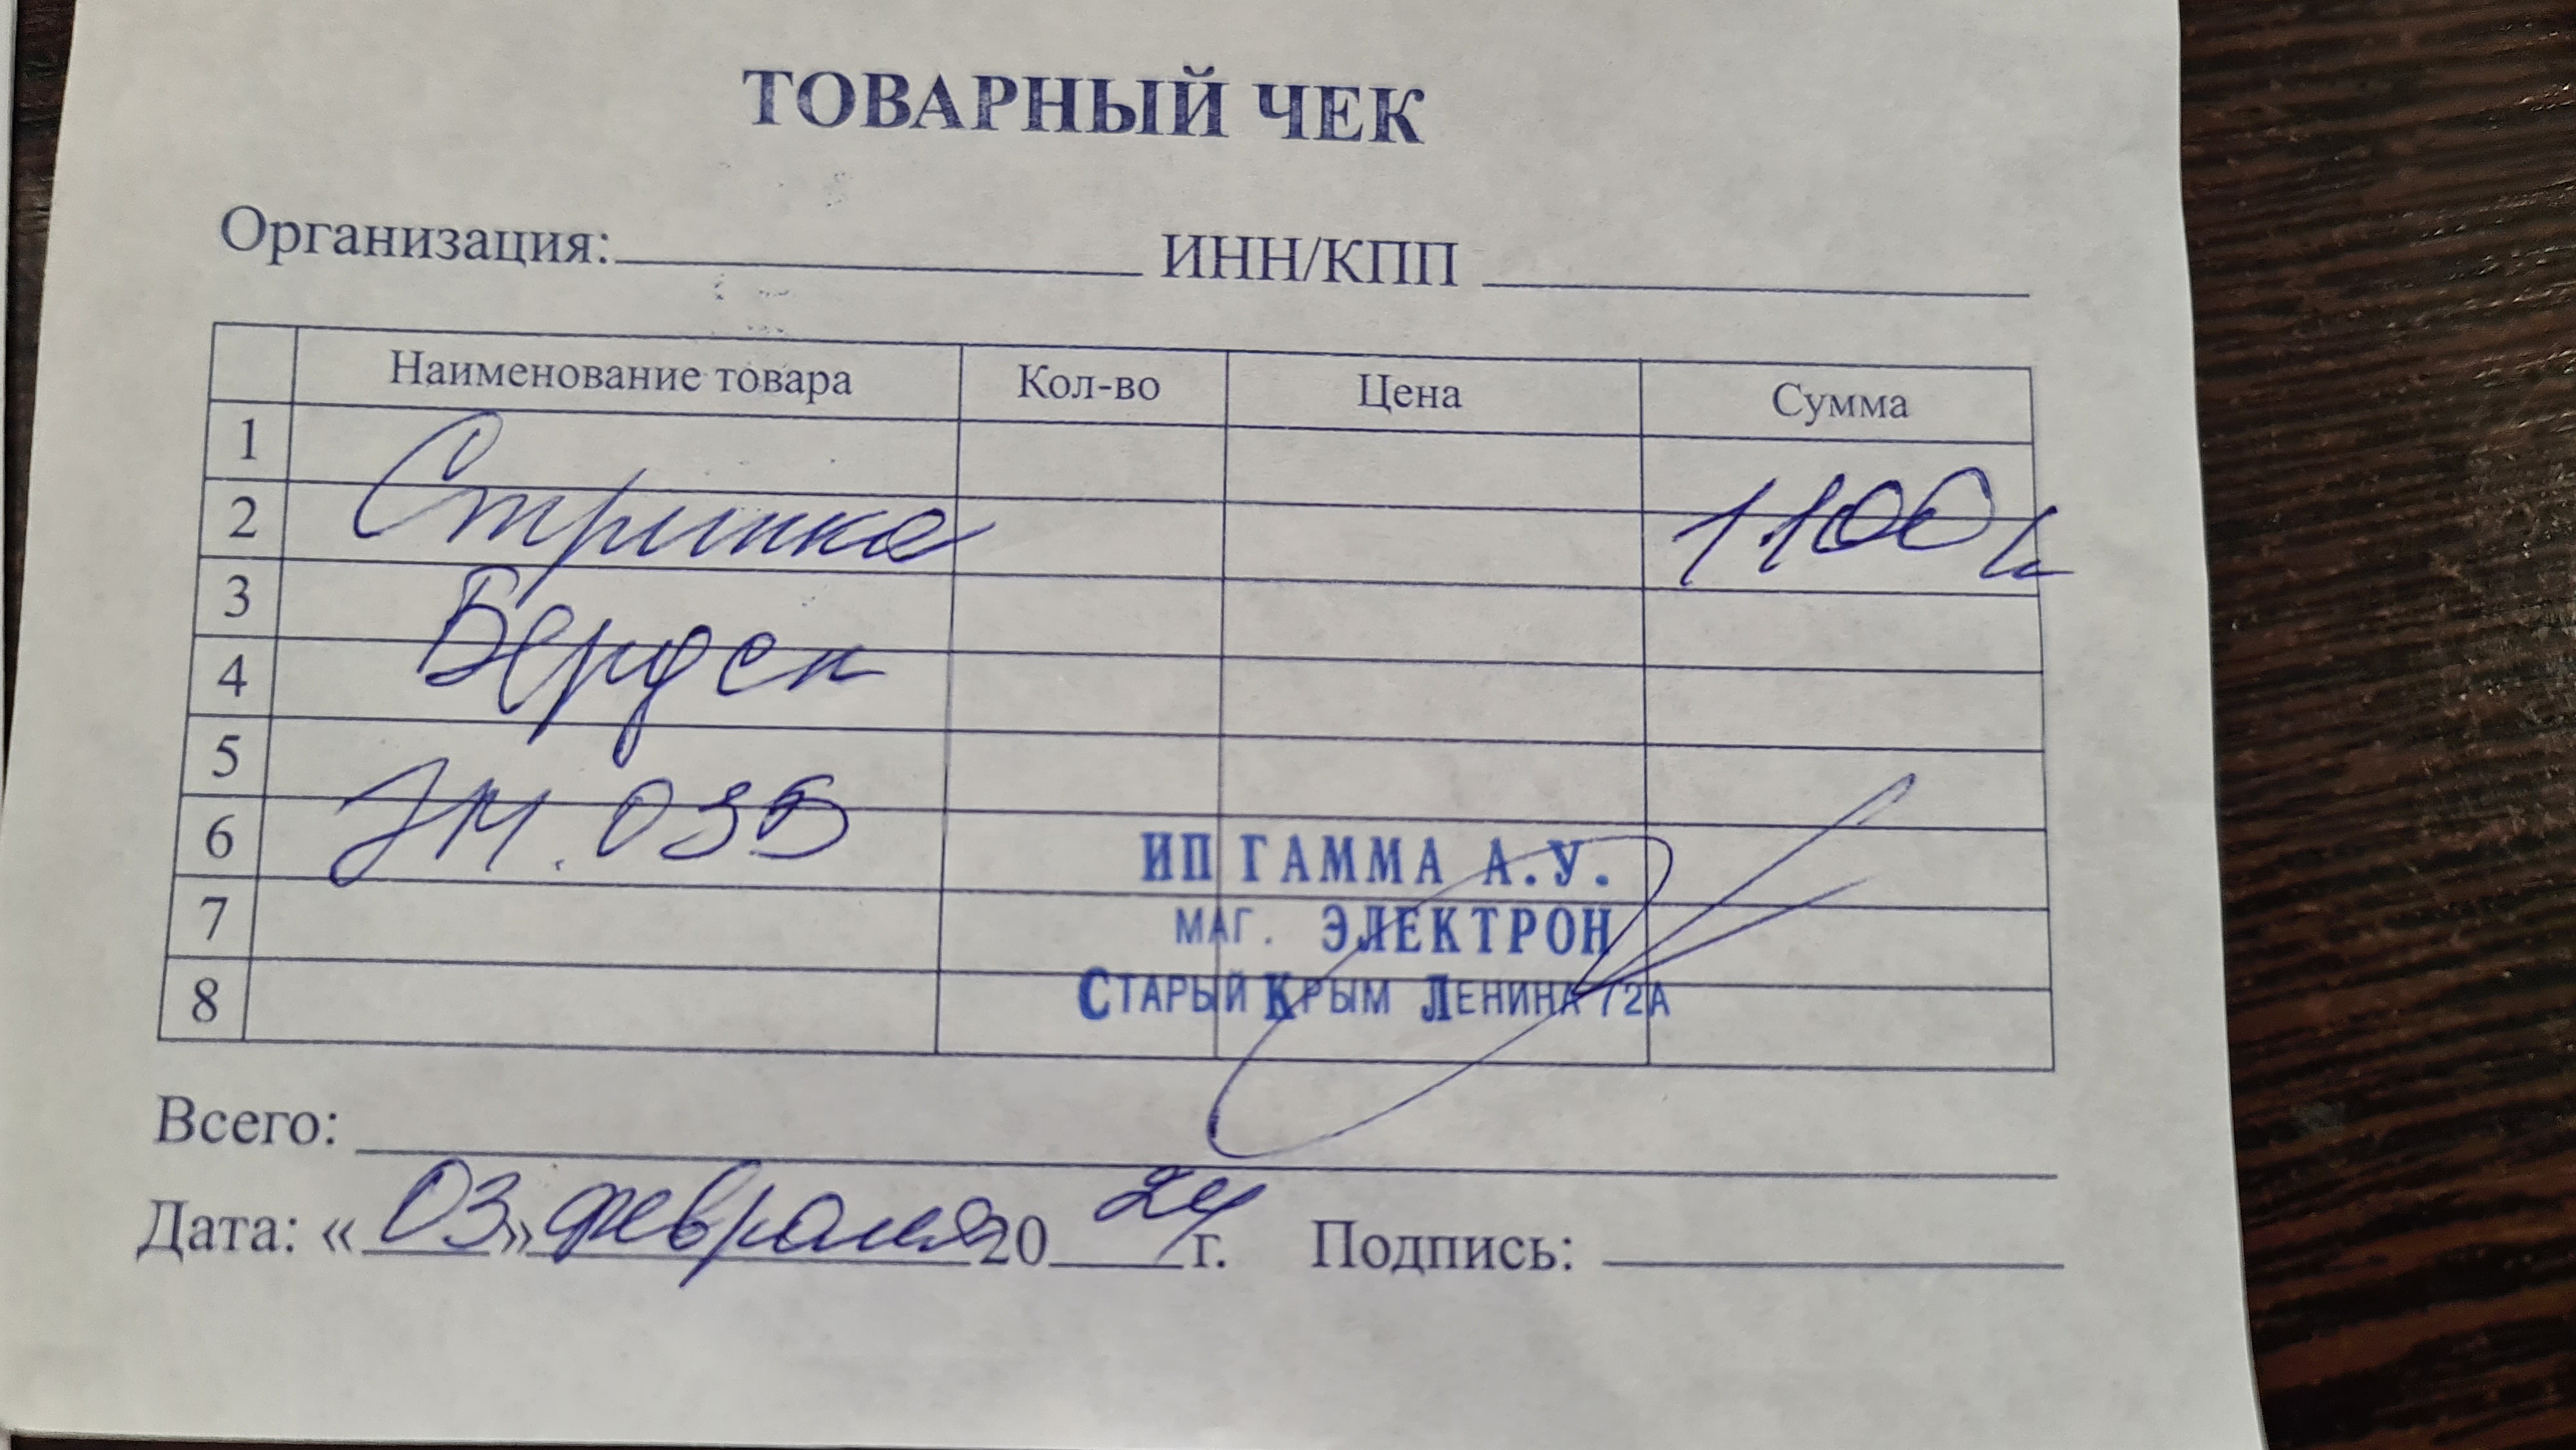 ТОВАРНЫЙ ЧЕК
Организация: ИНН/КПП
Наименование товара Кол-во Цена Сумма
1
2 1100
3
4 Берден
5
6 035
7
8
ИП ГАММА А.У.
МАГ. ЭЛЕКТРОН
СТАРЫЙ КРЫМ ЛЕНИНА 72А
Всего:
Дата: «03» февраля 2024 г. Подпись: